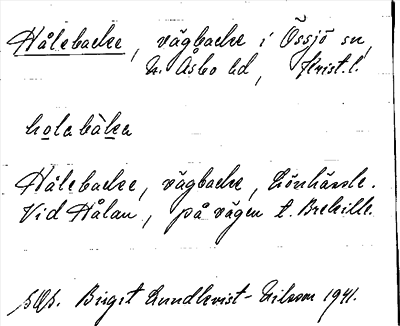 Hålebacke, vägbacke i Össjö sn,
N. Åsbo hd, Krist. l.
holabàka
Hålebacke, vägbacke, Lönhässle.
Vid Hålan, på vägen t. Breleille.
Birgit Lundkvist-Nilsson 1941.